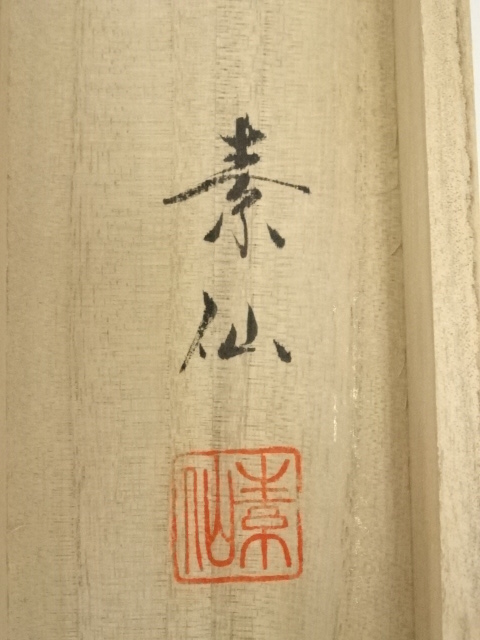 素仙
素仙